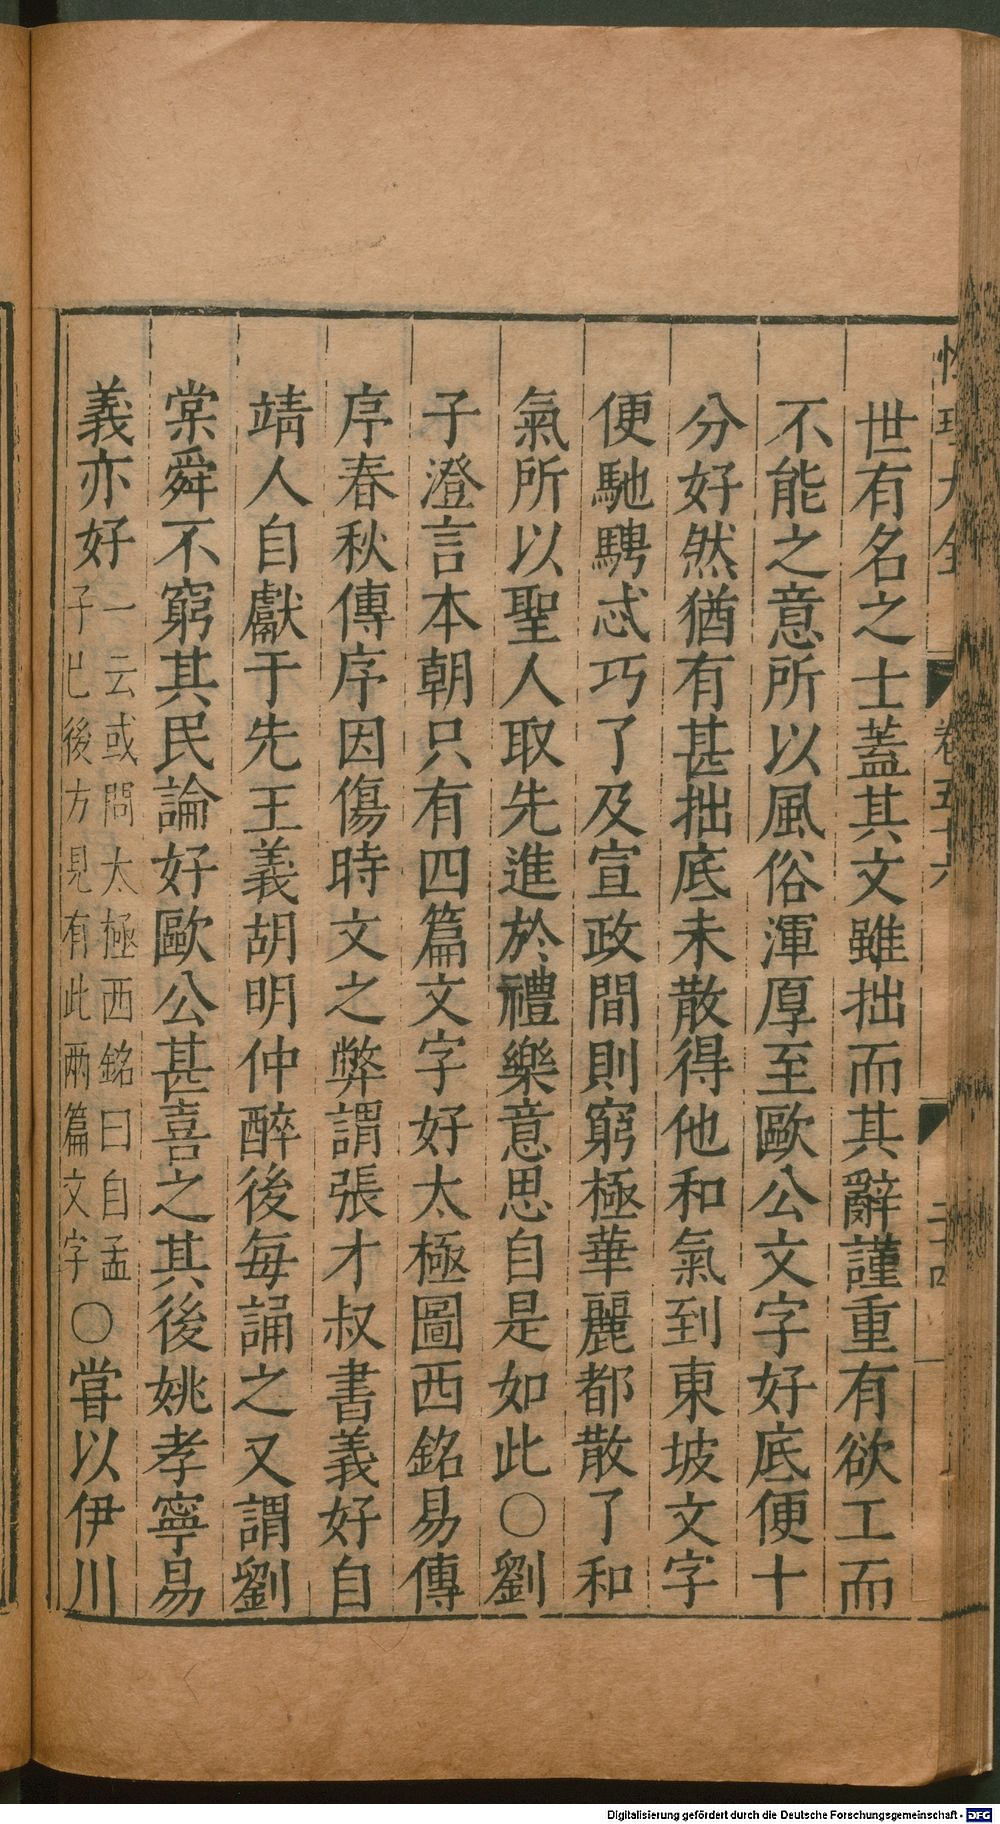 性理大全 卷五十六 二十四
世有名之士蓋其文雖拙而其辭謹重有欲工而
不能之意所以風俗渾厚至歐公文字好底便十
分好然猶有甚拙底未散得他和氣到東坡文字
便馳騁忒巧了及宣政間則窮極華麗都散了和
氣所以聖人取先進於禮樂意思自是如此○劉
子澄言本朝只有四篇文字好太極圖西銘易傳
序春秋傳序因傷時文之弊謂張才叔書義好自
靖人自獻于先王義胡明仲醉後每誦之又謂劉
棠舜不窮其民論好歐公甚喜之其後姚孝寧易
義亦好
一云或問太極西銘曰自孟
子已後方見有此兩篇文字
○嘗以伊川
Digitalisierung gefördert durch die Deutsche Forschungsgemeinschaft - DFG